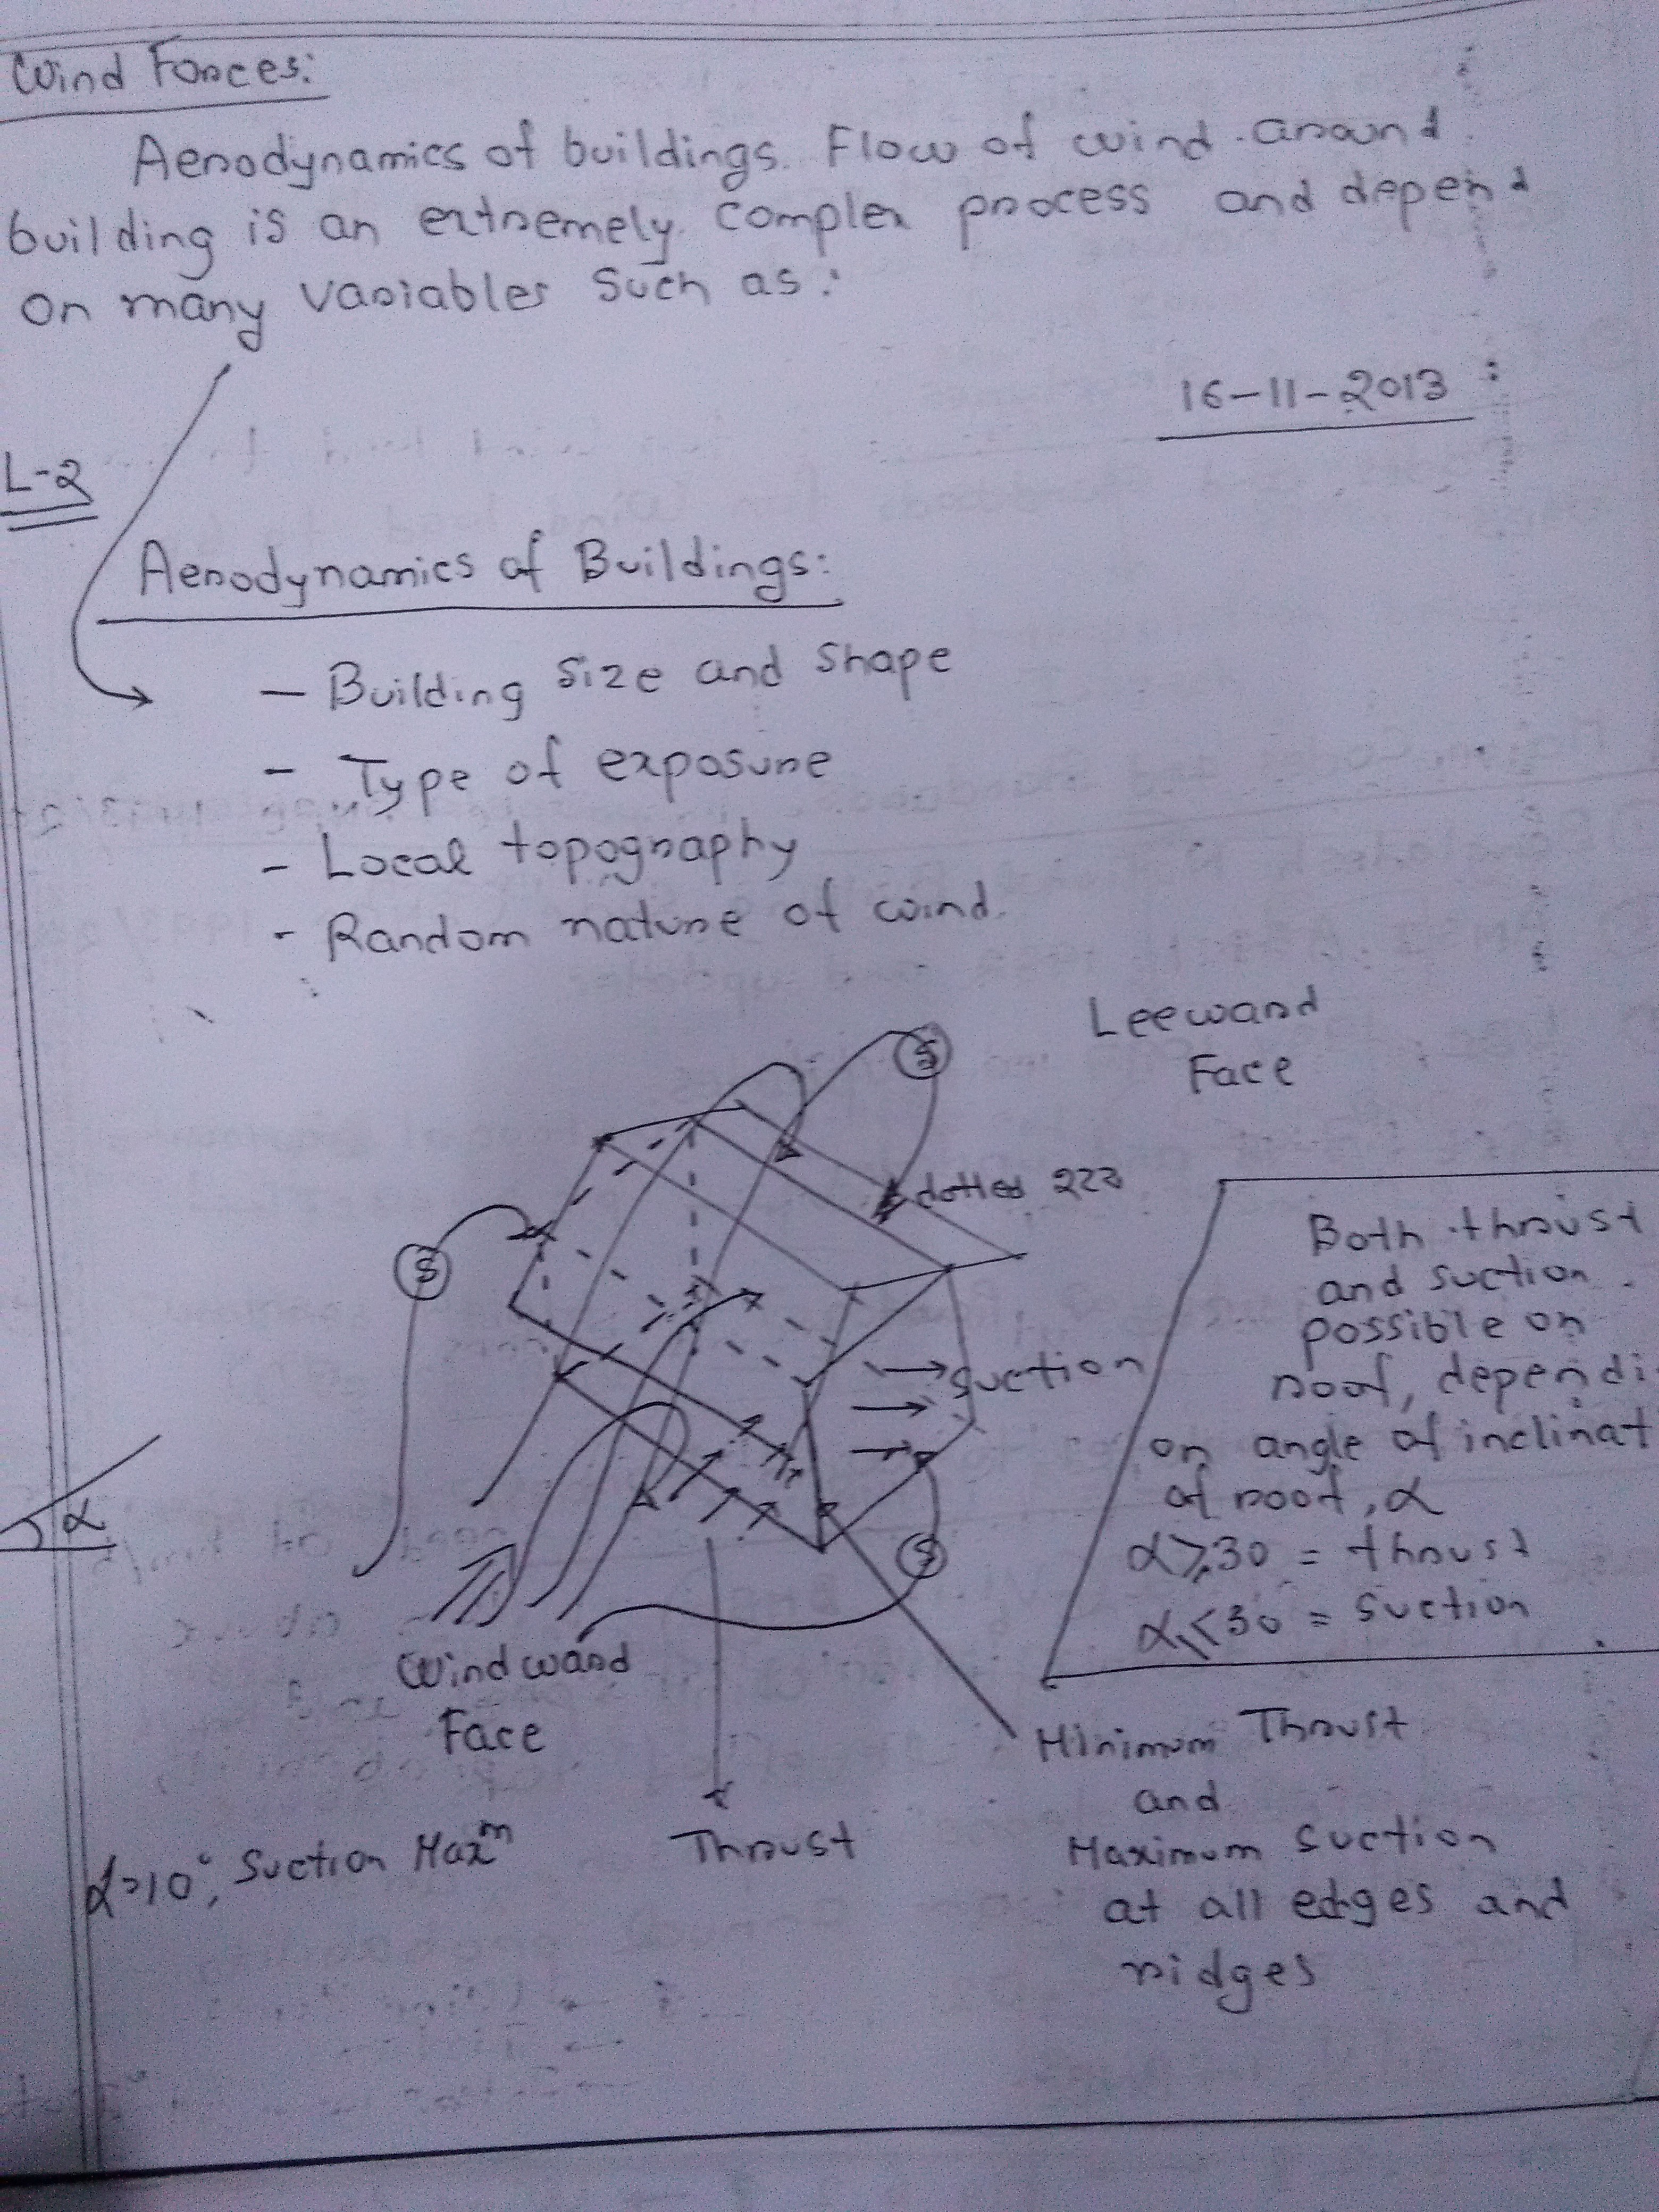 Wind Forces:
Aerodynamics of buildings. Flow of wind around
building is an extremely complex process and depend
on many variables such as:
16-11-2013
L-2
Aerodynamics of Buildings:
- Building size and shape
- Type of exposure
- Local topography
- Random nature of wind.
Leeward
Face
S
dotted
S
Both thrust
and suction
possible on
roof, dependi
on angle of inclinat
of roof, α
α ≥ 30 = thrust
α ≤ 30 = suction
suction
α
S
Windward
Face
Minimum Thrust
and
Maximum suction
at all edges and
ridges
Thrust
10°, Suction Maxᵐ